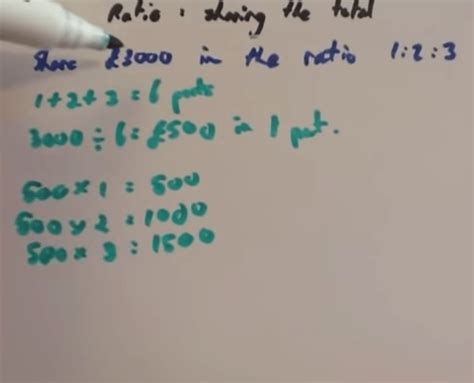 Ratio : sharing the total
Share £3000 in the ratio 1:2:3
1+2+3 = 6 parts
3000 ÷ 6 = £500 in 1 part.
500 x 1 = 500
500 x 2 = 1000
500 x 3 = 1500